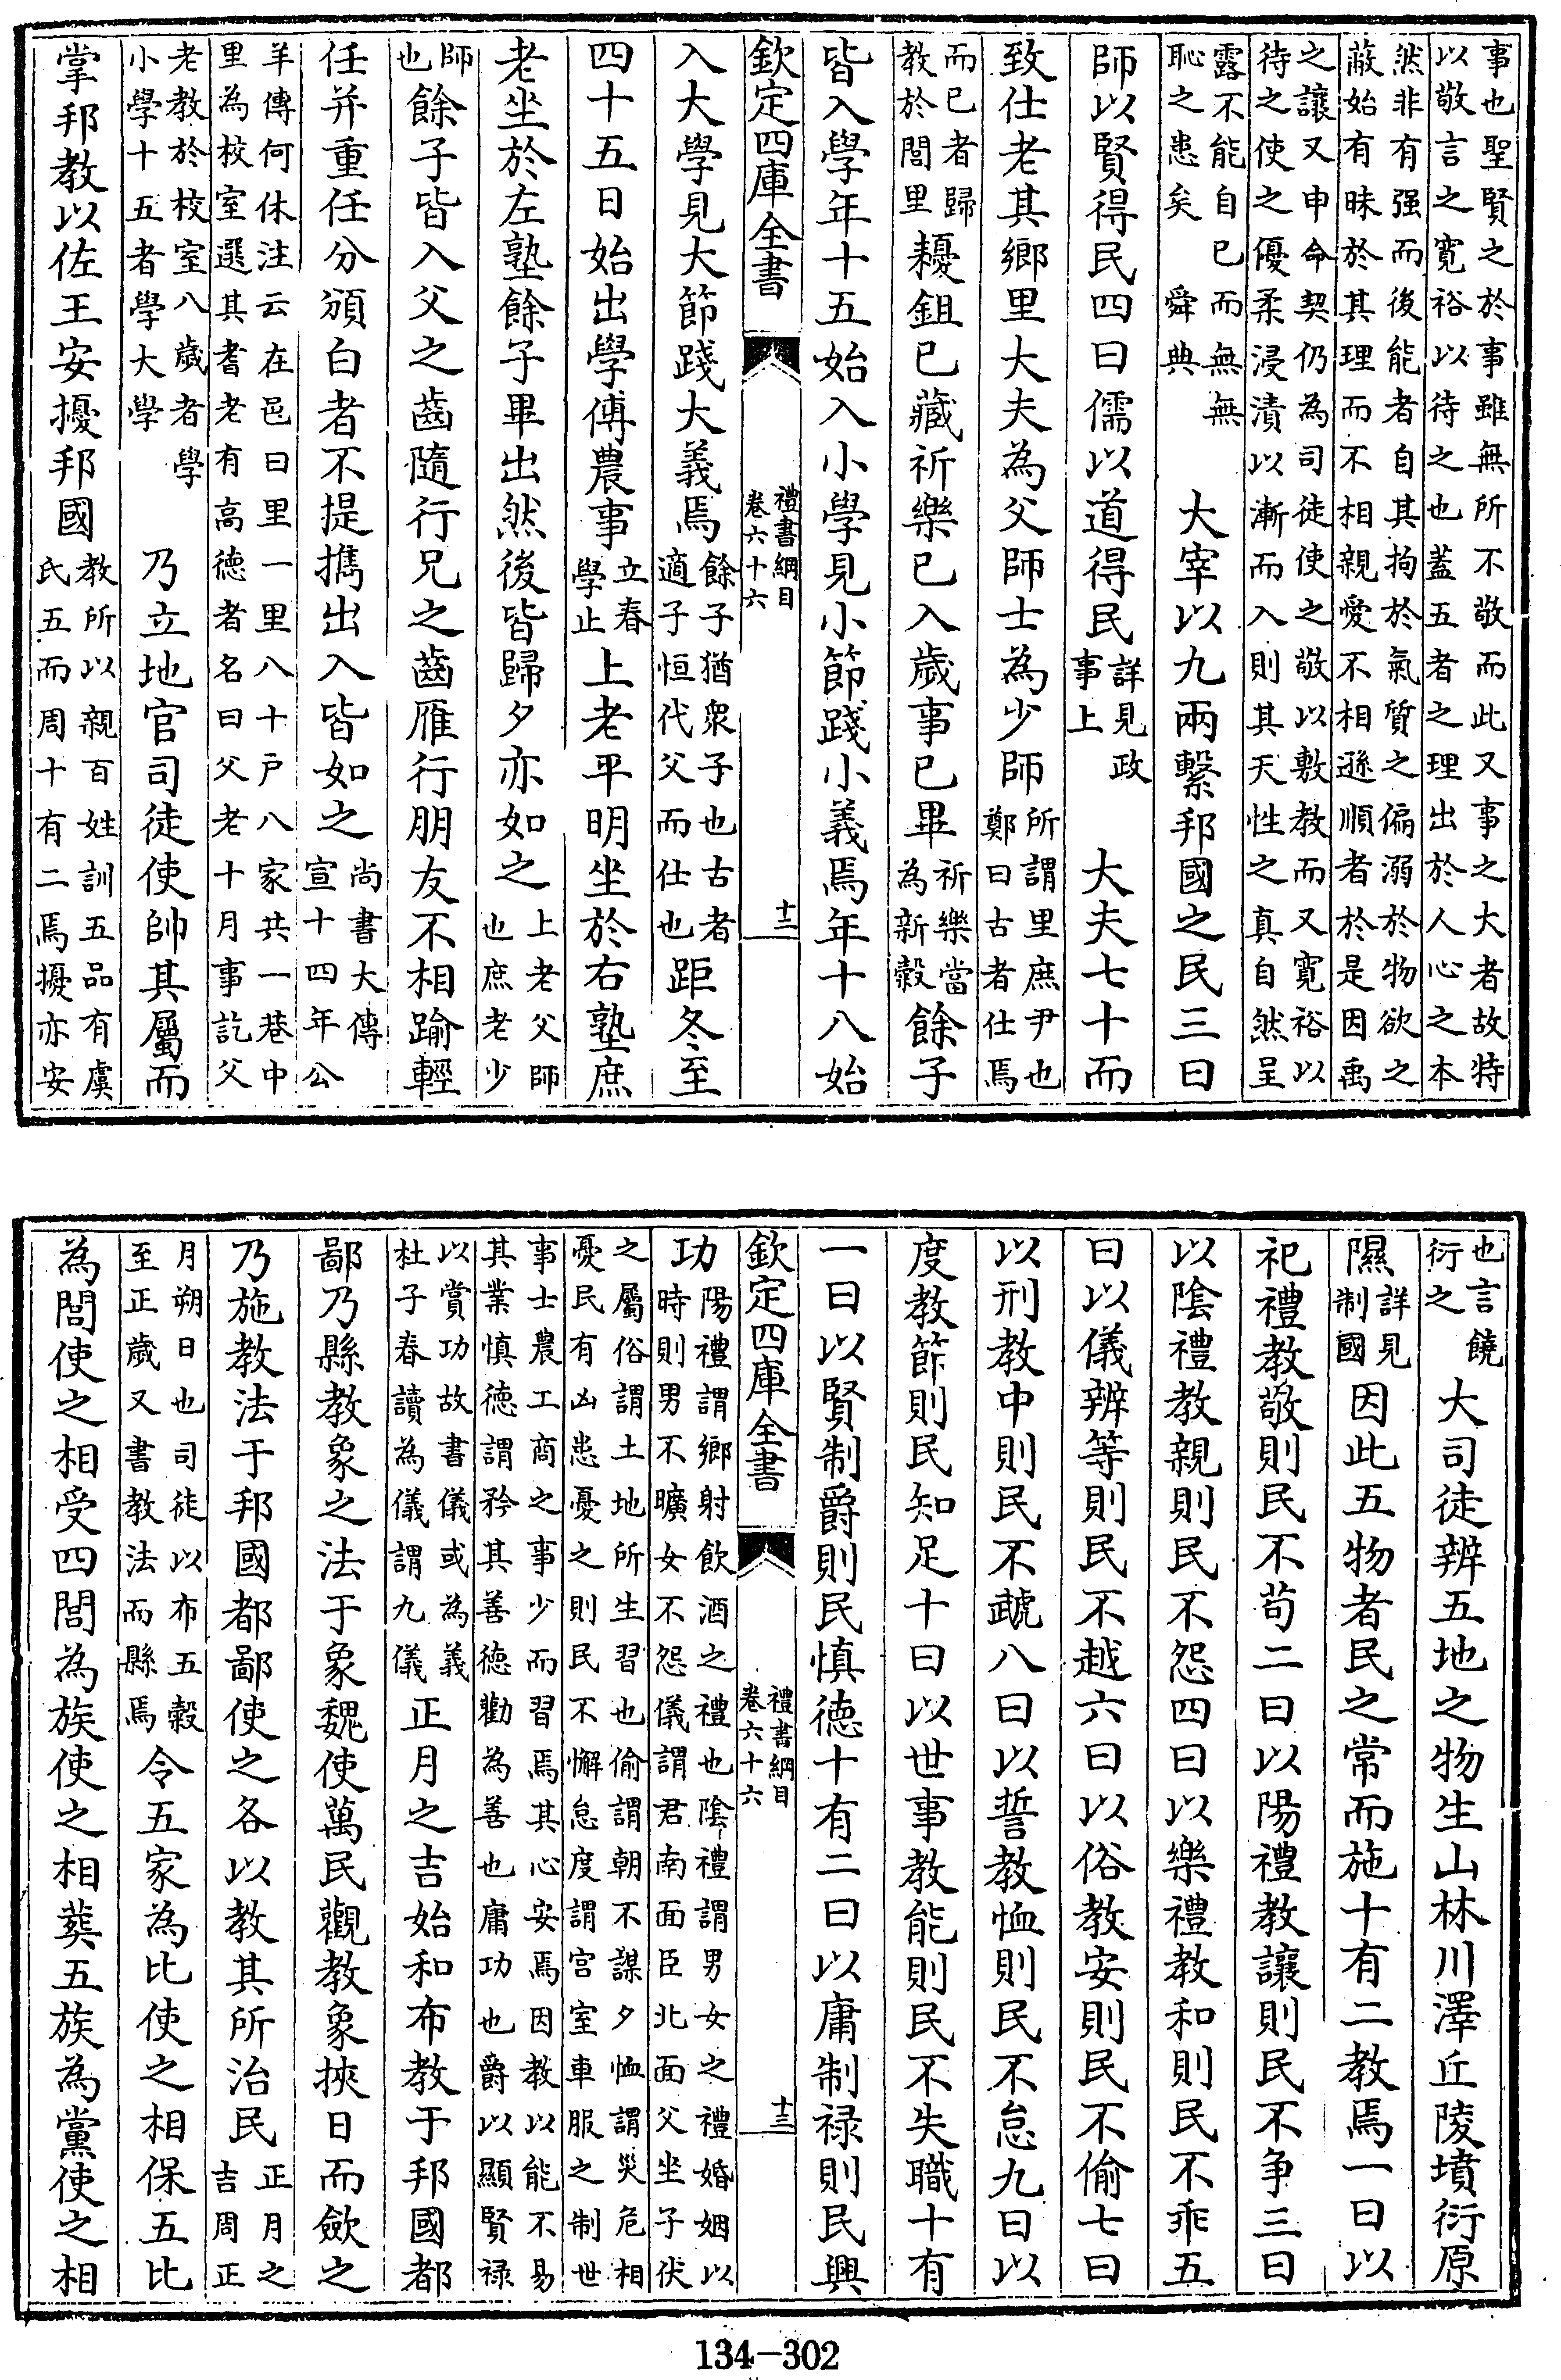 事也聖賢之於事雖無所不敬而此又事之大者故特
以敬言之寛裕以待之也蓋五者之理出於人心之本
然非有强而後能者自其拘於氣質之偏溺於物欲之
蔽始有昧於其理而不相親愛不相遜順者於是因禹
之讓又申命契仍為司徒使之敬以敷教而又寛裕以
待之使之優柔浸漬以漸而入則其天性之真自然呈
露不能自已而無無
恥之患矣 舜典
大宰以九兩繫邦國之民三曰
師以賢得民四曰儒以道得民
詳見政
事上
大夫七十而
致仕老其鄉里大夫為父師士為少師
所謂里庶尹也
鄭曰古者仕焉
而已者歸
教於閭里
耰鉏已藏祈樂已入歲事已畢
祈樂當
為新榖
餘子
皆入學年十五始入小學見小節踐小義焉年十八始
欽定四庫全書
禮書綱目
卷六十六
十二
入大學見大節踐大義焉
餘子猶衆子也古者
適子恒代父而仕也
距冬至
四十五日始出學傅農事
立春
學止
上老平明坐於右塾庶
老坐於左塾餘子畢出然後皆歸夕亦如之
上老父師
也庶老少
師
也
餘子皆入父之齒隨行兄之齒雁行朋友不相踰輕
任并重任分頒白者不提攜出入皆如之
尚書大傳
宣十四年公
羊傳何休注云在邑曰里一里八十戶八家共一巷中
里為校室選其耆老有高德者名曰父老十月事訖父
老教於校室八歲者學
小學十五者學大學
乃立地官司徒使帥其屬而
掌邦教以佐王安擾邦國
教所以親百姓訓五品有虞
氏五而周十有二焉擾亦安
也言饒
衍之
大司徒辨五地之物生山林川澤丘陵墳衍原
隰
詳見
制國
因此五物者民之常而施十有二教焉一曰以
祀禮教敬則民不茍二曰以陽禮教讓則民不争三曰
以陰禮教親則民不怨四曰以樂禮教和則民不乖五
曰以儀辨等則民不越六曰以俗教安則民不偷七曰
以刑教中則民不虣八曰以誓教恤則民不怠九曰以
度教節則民知足十曰以世事教能則民不失職十有
一曰以賢制爵則民慎徳十有二曰以庸制禄則民興
欽定四庫全書
禮書綱目
卷六十六
十三
功
陽禮謂鄉射飲酒之禮也陰禮謂男女之禮婚姻以
時則男不曠女不怨儀謂君南面臣北面父坐子伏
之屬俗謂土地所生習也偷謂朝不謀夕恤謂災危相
憂民有凶患憂之則民不懈怠度謂宫室車服之制世
事士農工商之事少而習焉其心安焉因教以能不易
其業慎徳謂矜其善徳勸為善也庸功也爵以顯賢禄
以賞功故書儀或為義
杜子春讀為儀謂九儀
正月之吉始和布教于邦國都
鄙乃縣教象之法于象魏使萬民觀教象挾日而歛之
乃施教法于邦國都鄙使之各以教其所治民
正月之
吉周正
月朔日也司徒以布五榖
至正歲又書教法而縣焉
令五家為比使之相保五比
為閭使之相受四閭為族使之相葬五族為黨使之相
134-302